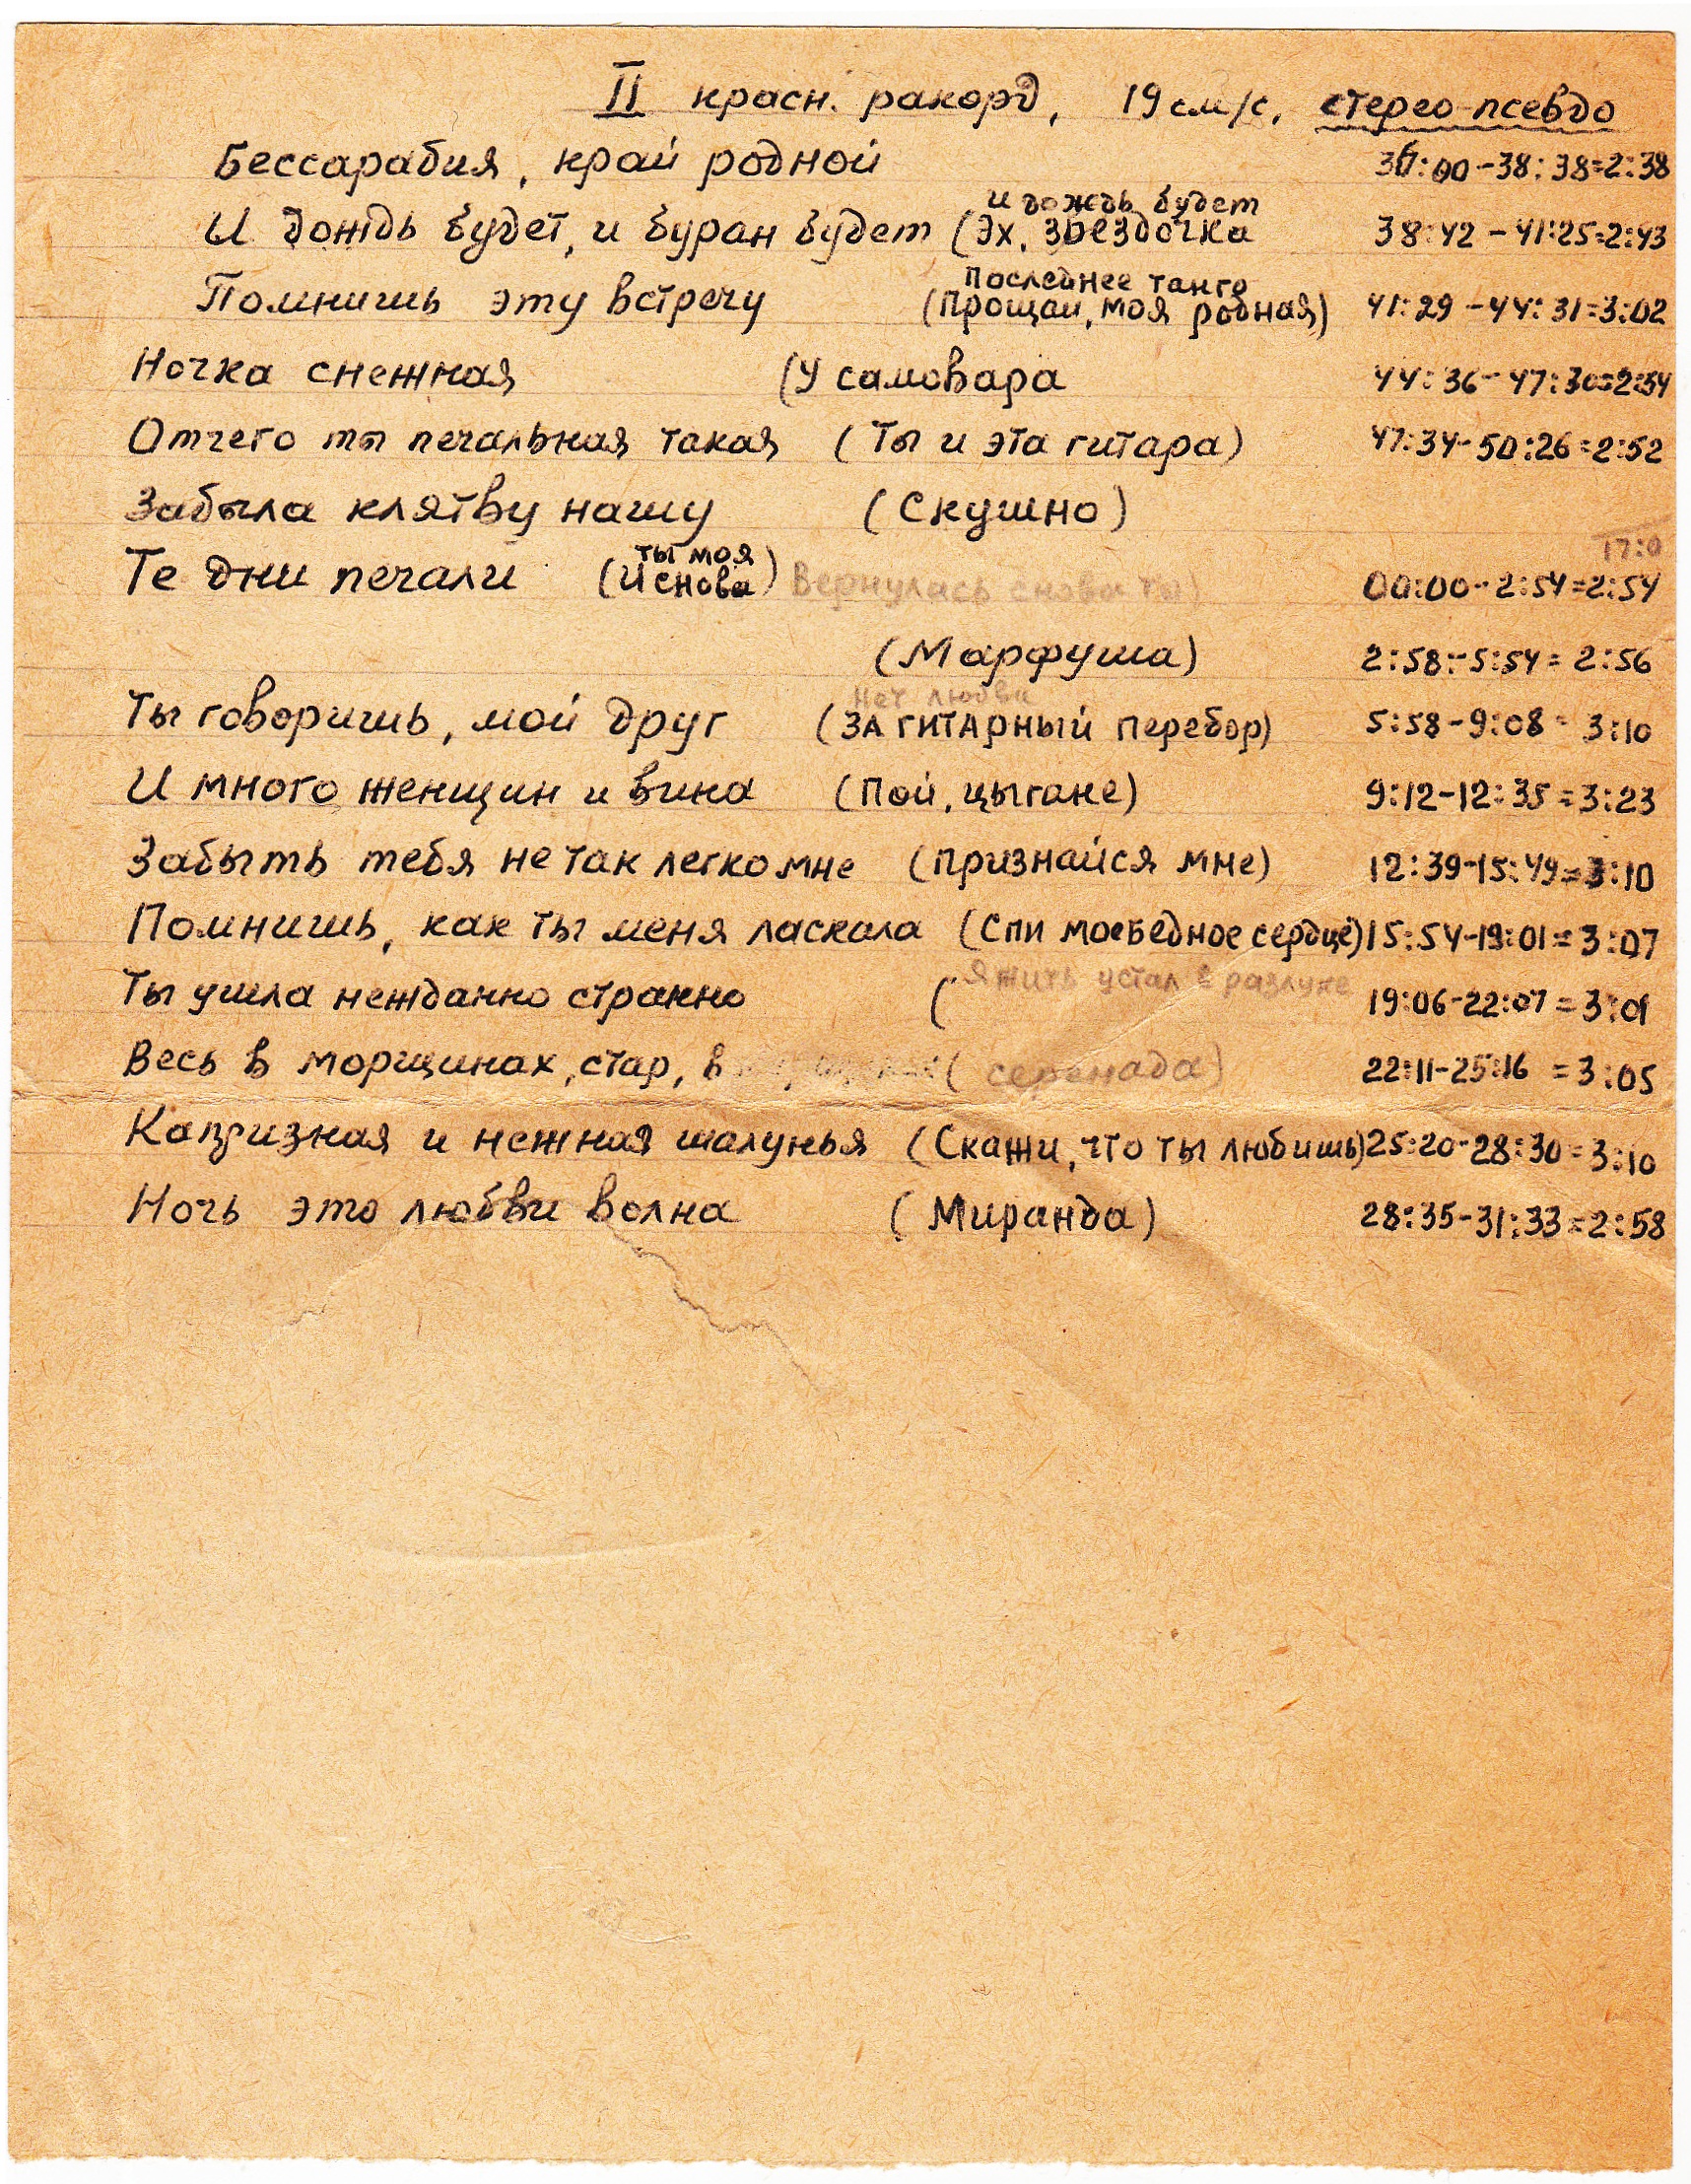 II красн. ракорд, 19 см/с, стерео-псевдо
Бессарабия, край родной 36:00-38:38=2:38
и дождь будет
И дождь будет, и буран будет (Эх, звездочка 38:42-41:25=2:43
Последнее танго
Помнишь эту встречу (прощай, моя родная) 41:29-44:31=3:02
Ночка снежная (У самовара 44:36-47:30=2:54
Отчего ты печальная такая (Ты и эта гитара) 47:34-50:26=2:52
Забыла клятву нашу (Скушно)
17:0
ты моя
Те дни печали (И снова) Вернулась снова ты) 00:00-2:54=2:54
(Марфуша) 2:58-5:54=2:56
Нет любви
Ты говоришь, мой друг (ЗА ГИТАРНЫЙ перебор) 5:58-9:08=3:10
И много женщин и вина (Пой, цыгане) 9:12-12:35=3:23
Забыть тебя не так легко мне (признайся мне) 12:39-15:49=3:10
Помнишь, как ты меня ласкала (Спи мое бедное сердце) 15:54-19:01=3:07
Я жить устал в разлуке
Ты ушла нежданно странно ( 19:06-22:07=3:01
Весь в морщинах, стар, в (серенада) 22:11-25:16=3:05
Капризная и нежная шалунья (Скажи, что ты любишь) 25:20-28:30=3:10
Ночь это любви волна (Миранда) 28:35-31:33=2:58